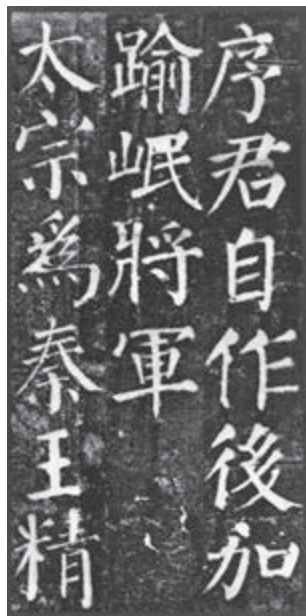 序君自作後加
踰岷將軍
太宗爲秦王精